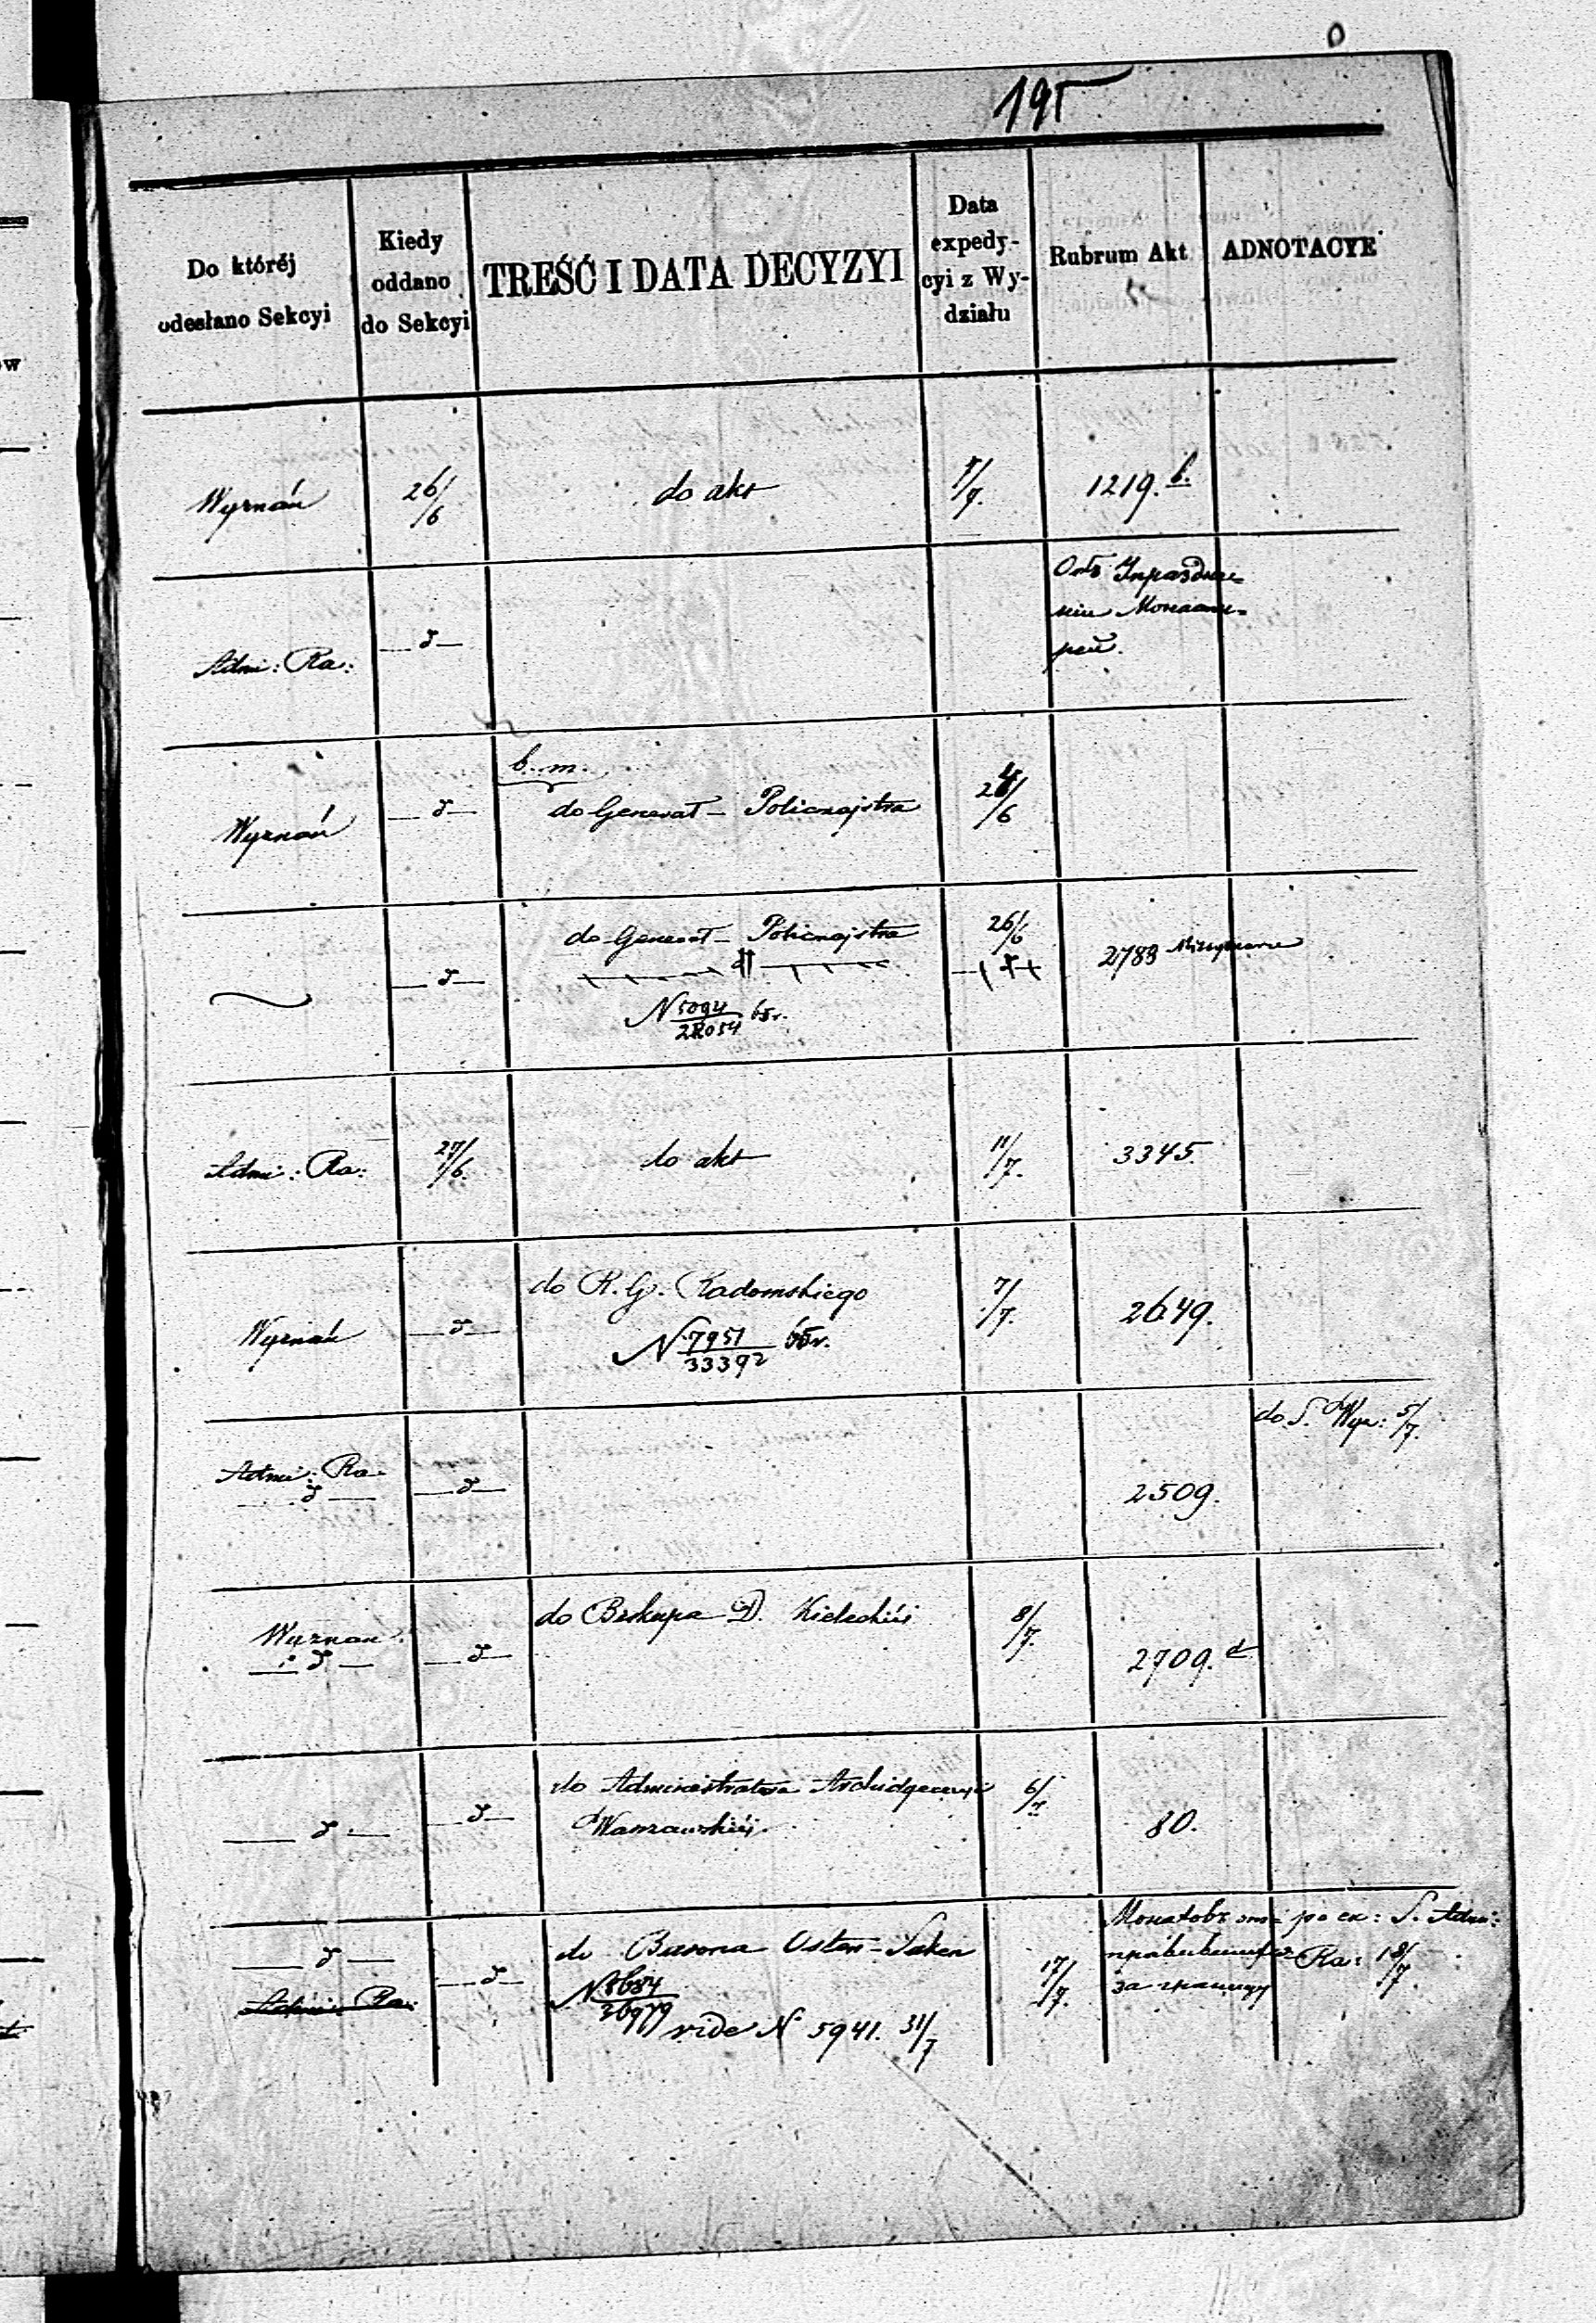 195
Do któréj
odesłano Sekcyi
Kiedy
oddano
do Sekcyi
TREŚĆ I DATA DECYZYI
Data
expedy-
cyi z Wy-
działu
Rubrum Akt
ADNOTACYE
Wyznań
26/6
do akt
1219. b.
Adm: Ra:
— d —
Объ Упраздне-
ніи Монасты-
рей.
Wyznań
— d —
b. m.
do Generał - Policmajstra
/6
— d —
do Generał - Policmajstra
N 5094/28054 65 r.
26/6
2783
Adm: Ra:
27/6.
do akt
11/7.
3345.
Wyznań
— d —
do R. G. Radomskiego
N 7951/33392 65 r.
7/7.
2649.
Admi: Ra:
— d —
— d —
2509.
do S. Wyz: 5/7.
Wyznan:
— d —
— d —
do Biskupa D. Kieleckiéj
8/7.
2709. d
— d —
— d —
do Administratora Archidyecezyi
Warszawskiéj.
6/7
80.
— d —
Admi: Ra:
— d —
do Barona Osten-Saken
N 8684/36979
vide N 5941. 31/7
17/7.
за границу
S. Adm:
Ra: 18/7.